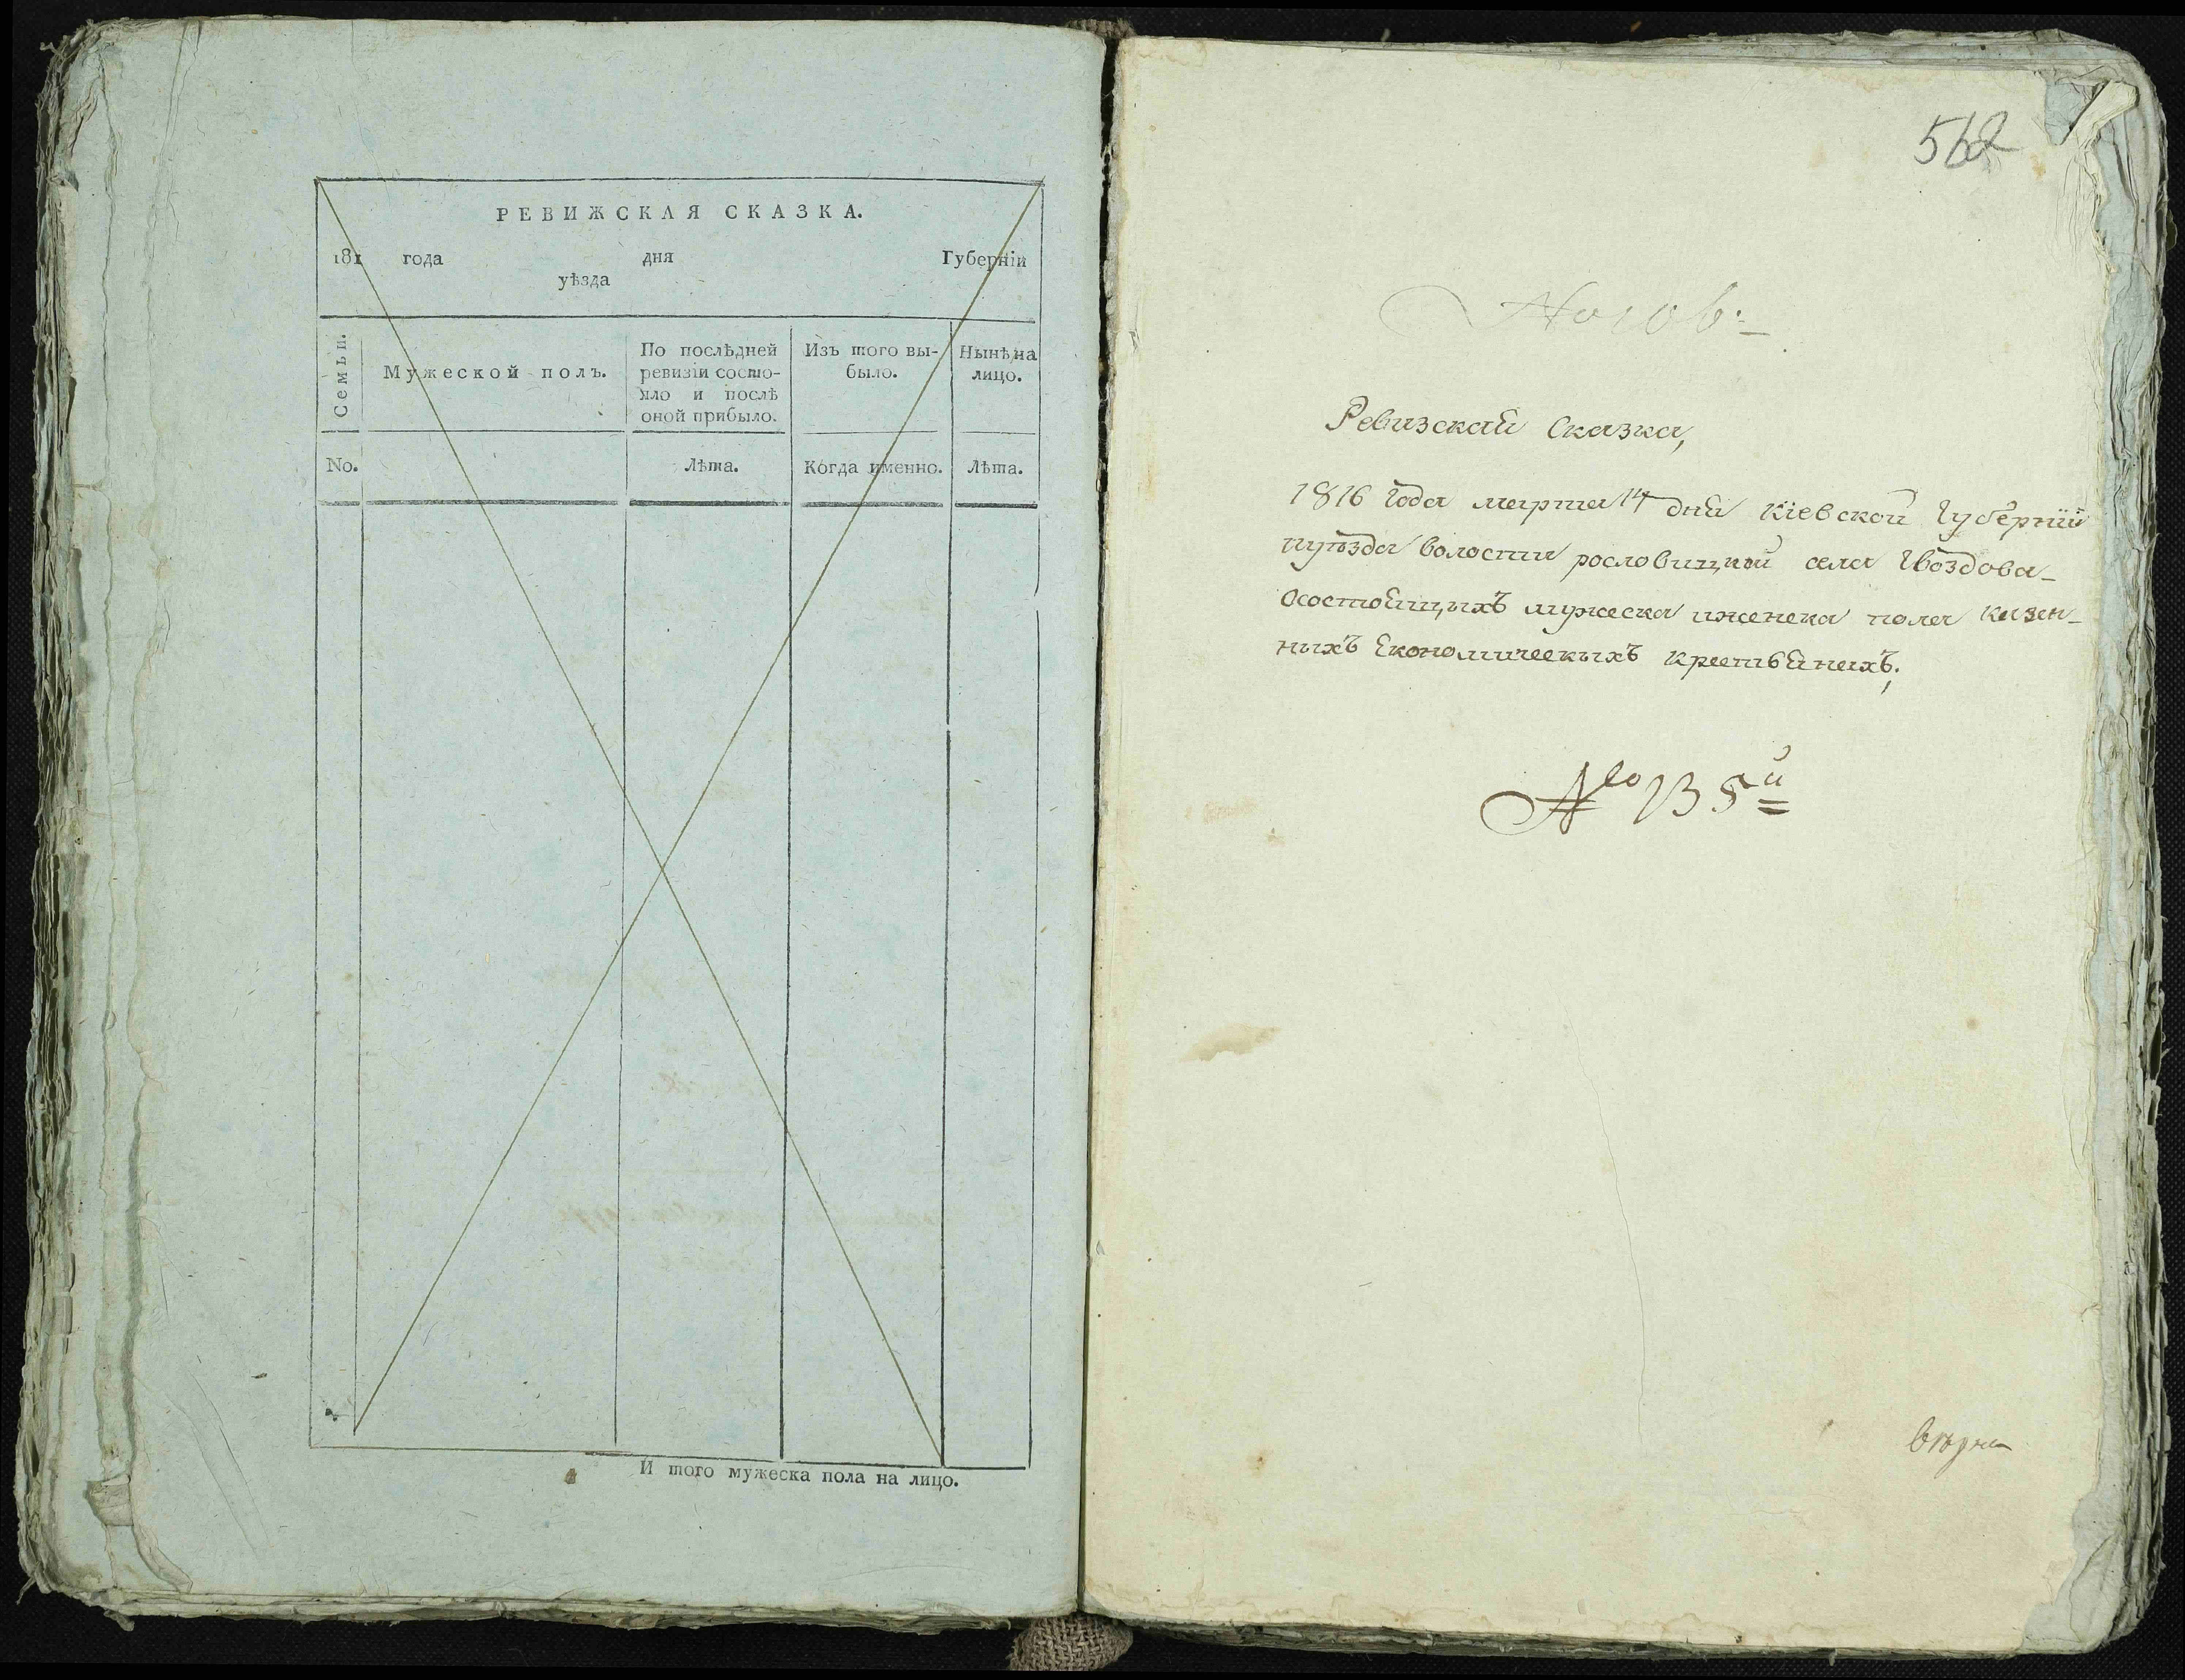 РЕВИЖСКАЯ СКАЗКА.
181 года дня Губерніи
уѣзда
Семьи.
Мужеской полъ.
По послѣдней
ревизіи состо-
яло и послѣ
оной прибыло.
Изъ того вы-
было.
Нынѣ на
лицо.
No.
Лѣта.
Когда именно.
Лѣта.
И того мужеска пола на лицо.
562
Ревизская Сказка,
1816 Года марта 14 дня Кіевской Губерніи
иуѣзда волости рословицкой села Гвоздова
Осостоящихъ мужеска иженска пола казен-
ныхъ Економическихъ крестьянахъ.
№ 135й